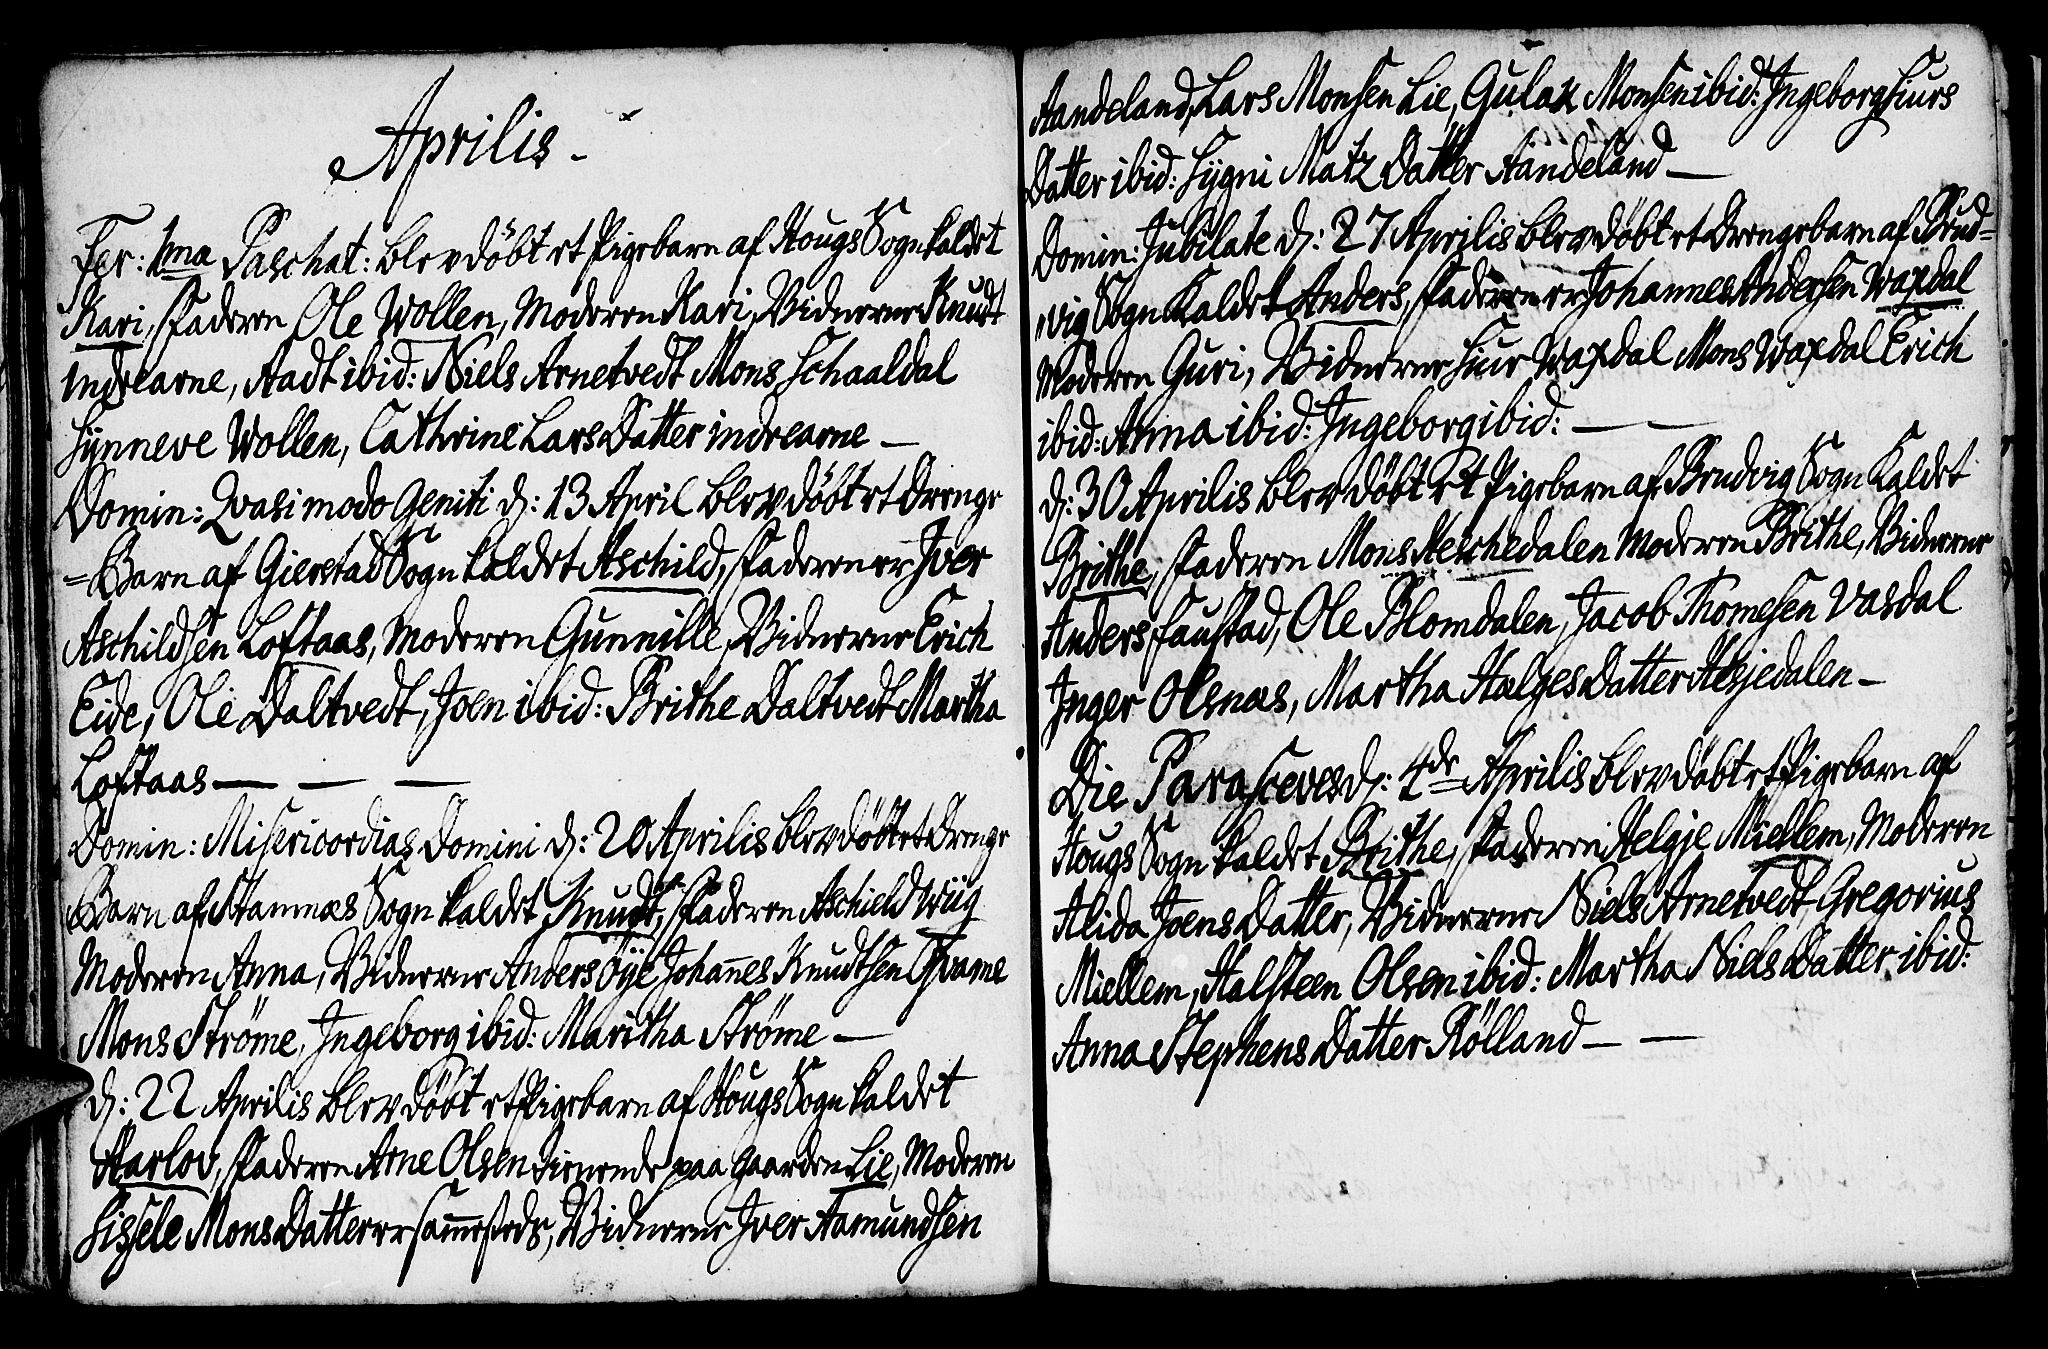 Aprilis.
Fer: 1ma Paschat: blev döbt et Pigebarn af Hougs Sogn kaldet
Kari, Faderen Ole Wollen, Moderen Kari, Vidnerne Knudt
Indrearne, Aadt ibid: Niels Arnetvedt Mons Schaaldal
Synneve Wollen, Cathrine Lars Datter indrearne —
Domin: Qvasimodo Geniti d: 13 April blev döbt et Drenge
=Barn af Gierstad Sogn kaldet Aschild, Faderen er Iver
Aschildsen Loftaas, Moderen Gunnille, Vidnerne Erich
Eide, Ole Daltvedt, Joen ibid: Brithe Daltvedt Martha
Loftaas — — —
Domin: Misericordias Domini d: 20 Aprilis blev döbt et Drenge
Barn af Stamnæs Sogn kaldet Knudt, Faderen Aschield Wiig
Moderen Anna, Vidnerne Anders Öye Johannes Knudtsen Qvame
Mons Ströme, Ingeborg ibid: Maritha Ströme —
d: 22 Aprilis blev döbt et Pigebarn af Hougs Sogn kaldet
Harlov, Faderen Arne Olsen tienende paa gaarden Lie, Moderen
Sissele Mons Datter er sammesteds, Vidnerne Iver Aamundsen
Aandeland, Lars Monsen Lie, Gulak Monsen ibid: Ingeborg Siurs
Datter ibid: Sygni Matz Datter Aandeland —
Domin: Jubilate d: 27 Aprilis blev döbt et Drengebarn af Brud=
vig Sogn kaldet Anders, Faderen er Johannes Andersen Waxdal
Moderen Guri, Vidnerne Siur Waxdal Mons Waxdal Erich
ibid: Anna ibid: Ingeborg ibid: — —
d: 30 Aprilis blev döbt et Pigebarn af Brudvig Sogn kaldet
Brithe, Faderen Mons Heschedalen Moderen Brithe, Vidnerne
Anders Faustad, Ole Blomdalen, Jacob Thomesen Vasdal
Inger Olsnæs, Martha Hælges Datter Hesjedalen —
Die Parasceves d: 4de Aprilis blev döbt et Pigebarn af
Hougs Sogn kaldet Brithe, Faderen Helgje Miellem, Moderen
Alida Joens Datter, Vidnerne Niels Arnetvedt, Gregorius
Miellem, Halsteen Olsen ibid: Martha Niels Datter ibid:
Anna Stephens Datter Rölland — —